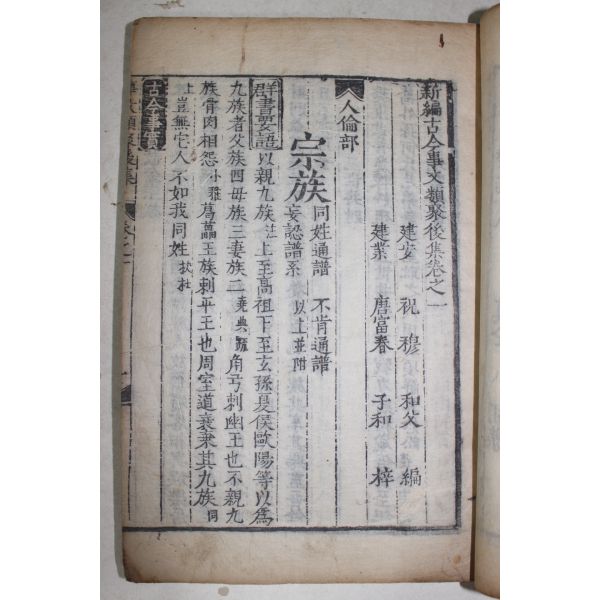 新編古今事文類聚後集卷之一
建安　祝　穆　和父　編
建業　唐富春　子和　梓
人倫部
宗族　同姓通譜　不肯通譜
妄認譜系　以上並附
群書要語　以親九族注上至高祖下至玄孫夏侯歐陽等以爲
九族者父族四母族三妻族二堯典疏角弓刺幽王也不親九
族骨肉相怨小雅葛藟王族刺平王也周室道衰棄其九族同
上豈無它人不如我同姓杕杜
古今事實